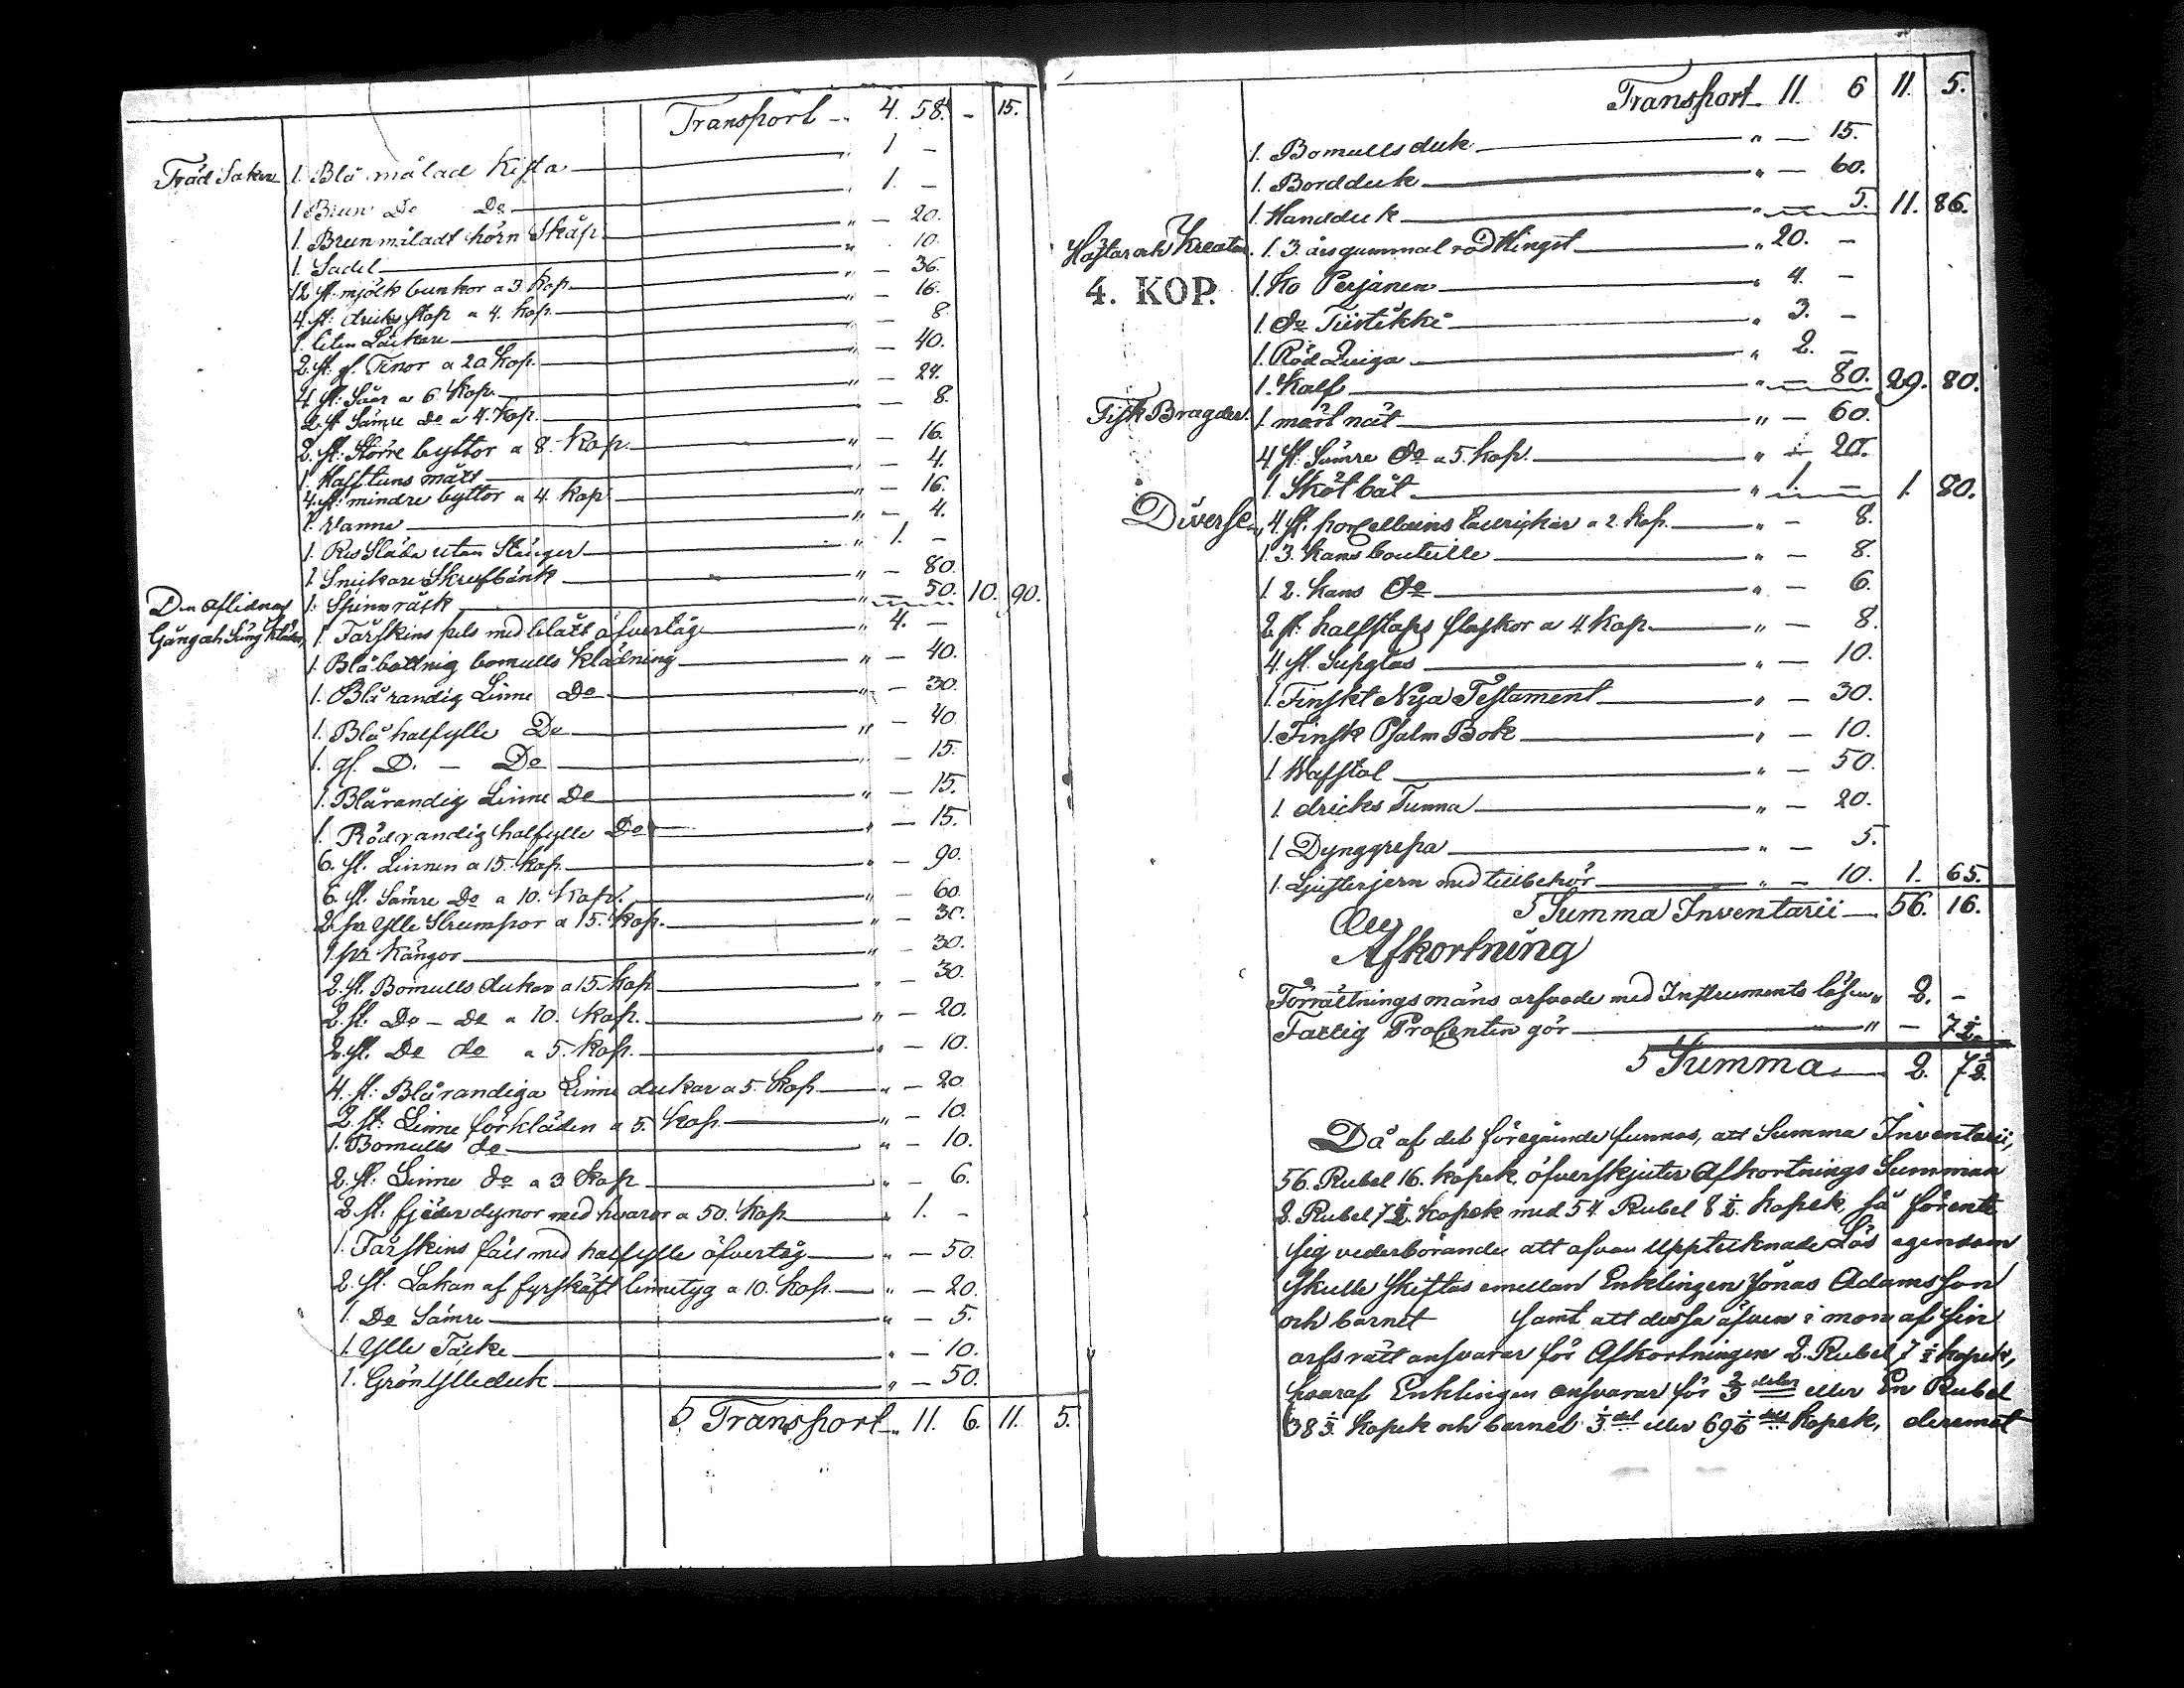 Transport 4. 58. - 15.
Träd Saker 1. Blå målad Kista " 1 -
1 Brun Do Do " 1. -
1. Brunmåladt hörn Skåp " - 20.
1. Sadel " 10.
12 st. mjölk bunkor a 3 Kop. " - 36.
4 st: dricks stop a 4. kop. " - 16.
1. liten " - 8.
2. st. gl. Tinor a 20. Kop. " - 40.
4 st: Såar a 6 Kop. " - 24.
2. st Sämre do a 4. Kop. - 8.
2. st: Större byttor a 8. Kop. " - 16.
1. Halftuns mått - 4.
4. st: mindre byttor a 4. Kop " - 16.
1. Vanna " - 4.
1. Res Släda utan Stänger " 1. -
1. Snickare Skrufbänk " - 80.
Den aflidnas 1. Spinnråck " - 50. 10. 90.
Gång och Säng Kläder, 1. Fårskins pels med blått öfvertåg " 4. -
1. Blåbottnig bomulls Klädning " - 40.
1. Blårandig Linne Do " - 30.
1. Blå halfylle Do " - 40.
1. gl. D. - Do " - 15.
1. Blårandig Linne Do " - 15.
1. Rödrandig halfylle Do " - 15.
6. st. Linnen a 15. Kop. " - 90.
6. st. Sämre Do a 10. Kop. " - 60.
2. pa Ylle Strumpor a 15. Kop. " - 30.
1. par Kängor " - 30.
2. st. Bomulls dukar a 15. Kop " - 30.
2. st. Do - do a 10. Kop. " - 20.
2. st. Do do a 5. Kop. " - 10.
4. st: Blårandiga Linne dukar a 5. Kop " - 20.
2. st: Linne förkläden a 5. Kop. " - 10.
1. Bomulls do " - 10.
2. st: Linne do a 3 Kop. " - 6.
2. st: fjäderdynor med hvaror a 50. Kop " 1. -
1. Fårskins fäll med halfylle öfvertåg " - 50.
2. st. Lakan af fyrskäft linnetyg a 10. Kop. " - 20.
1. Do Sämre " - 5.
1. Ylle Täcke " - 10.
1. Grön Ylleduk " - 50.
Transport 11. 6. 11. 5.
Transport 11. 6 11. 5.
1. Bomulls duk " - 15.
1. Bordduk " - 60.
1. Handduk " - 5. 11. 86.
Hästar och Kreatur. 1. 3. års gammal röd Hingst " 20. -
4. KOP. 1. Ko Perjänen " 4. -
1. do Tiistikki " 3. -
1. Röd Quiga " 2. -
1. Kalf " - 80. 29. 80.
Fisk Bragder. 1. mört nät " - 60.
4 st. Sämre do a 5. kop. " - 20.
1. Sköt båt " 1. - 1. 80.
Diverse 4. st. porcellains tallrickar a 2. kop. " - 8.
1. 3. kans bouteille " - 8.
1. 2. kans do " - 6.
2. st: halfstops flaskor a 4. Kop " - 8.
4. st. Supglas " - 10.
1. Finskt Nya Testament " - 30.
1. Finsk Psalm Bok " - 10.
1. Wäfstol " - 50.
1 dricks Tunna " - 20.
1 Dynggrepa " - 5.
1. Ljusterjern med tillbehör " - 10. 1. 65.
Summa Inventarii 56. 16.
Afkortning
Förrättningsmäns arfvode med Instruments lösen " 2. -
Fattig ProCenten gör " - 7½.
Summa 2. 7½
Då af det föregående funnos, att Summa Inventarii,
56. Rubel 16. kopek öfverskjuter Afkortnings Summan
2. Rubel 7½. Kopek med 54 Rubel 8½. Kopek, så förente
sig vederbörande att ofvan Upptecknade Lös egendom
skulle skiftas emellan Enklingen Jonas Adamsson
och barnet samt att dessa äfven i mon af sin
arfsrätt ansvarar för Afkortningen 2. Rubel 7½ kopek,
hvaraf Enklingen ansvarar för ⅔ delar eller En Rubel
38⅓ Kopek och barnet ⅓ del eller 69⅙ del Kopek, deremot